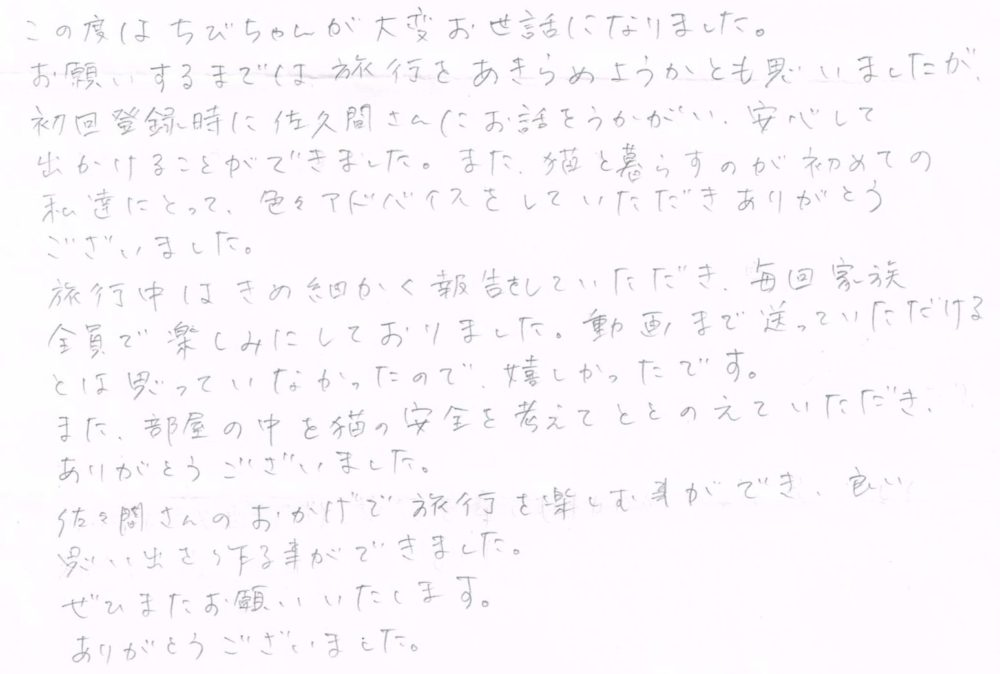 この度はちびちゃんが大変お世話になりました。
お願いするまでは旅行をあきらめようかとも思いましたが、
初回登録時に佐久間さんにお話をうかがい、安心して
出かけることができました。また、猫と暮らすのが初めての
私達にとって、色々アドバイスをしていただきありがとう
ございました。
旅行中はきめ細かく報告をしていただき、毎回家族
全員で楽しみにしておりました。動画まで送っていただける
とは思っていなかったので、嬉しかったです。
また、部屋の中を猫の安全を考えてととのえていただき、
ありがとうございました。
佐々間さんのおかげで旅行を楽しむ事ができ、良い
思い出を作る事ができました。
ぜひまたお願いいたします。
ありがとうございました。